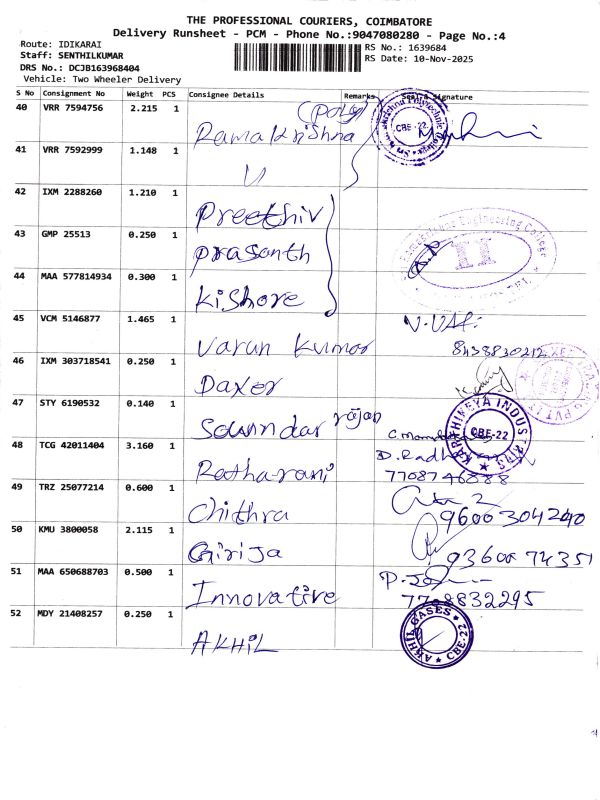 THE PROFESSIONAL COURIERS, COIMBATORE
Delivery Runsheet - PCM - Phone No.:9047080280 - Page No.:4
Route: IDIKARAI
Staff: SENTHILKUMAR
DRS No.: DCJB163968404
Vehicle: Two Wheeler Delivery
RS No.: 1639684
RS Date: 10-Nov-2025
S No Consignment No Weight PCS Consignee Details Remarks Seal & Signature
40 VRR 7594756 2.215 1 Ramakrishna (Poly) CBE-22
41 VRR 7592999 1.148 1 "
42 IXM 2288260 1.210 1 Preethiv
43 GMP 25513 0.250 1 Prasanth Engineering College II
44 MAA 577814934 0.300 1 Kishore
45 VCM 5146877 1.465 1 Varun Kumar 8438830212
46 IXM 303718541 0.250 1 Daxer
47 STY 6190532 0.140 1 Soundar rajan KARTHIKEYA INDUSTRIES CBE-22
48 TCG 42011404 3.160 1 Ratharani D. Radha 7708746888
49 TRZ 25077214 0.600 1 Chithra 9600304240
50 KMU 3800058 2.115 1 Girija 9360074351
51 MAA 650688703 0.500 1 Innovative 7708832295
52 MDY 21408257 0.250 1 AKHIL AKHIL GASES CBE-22